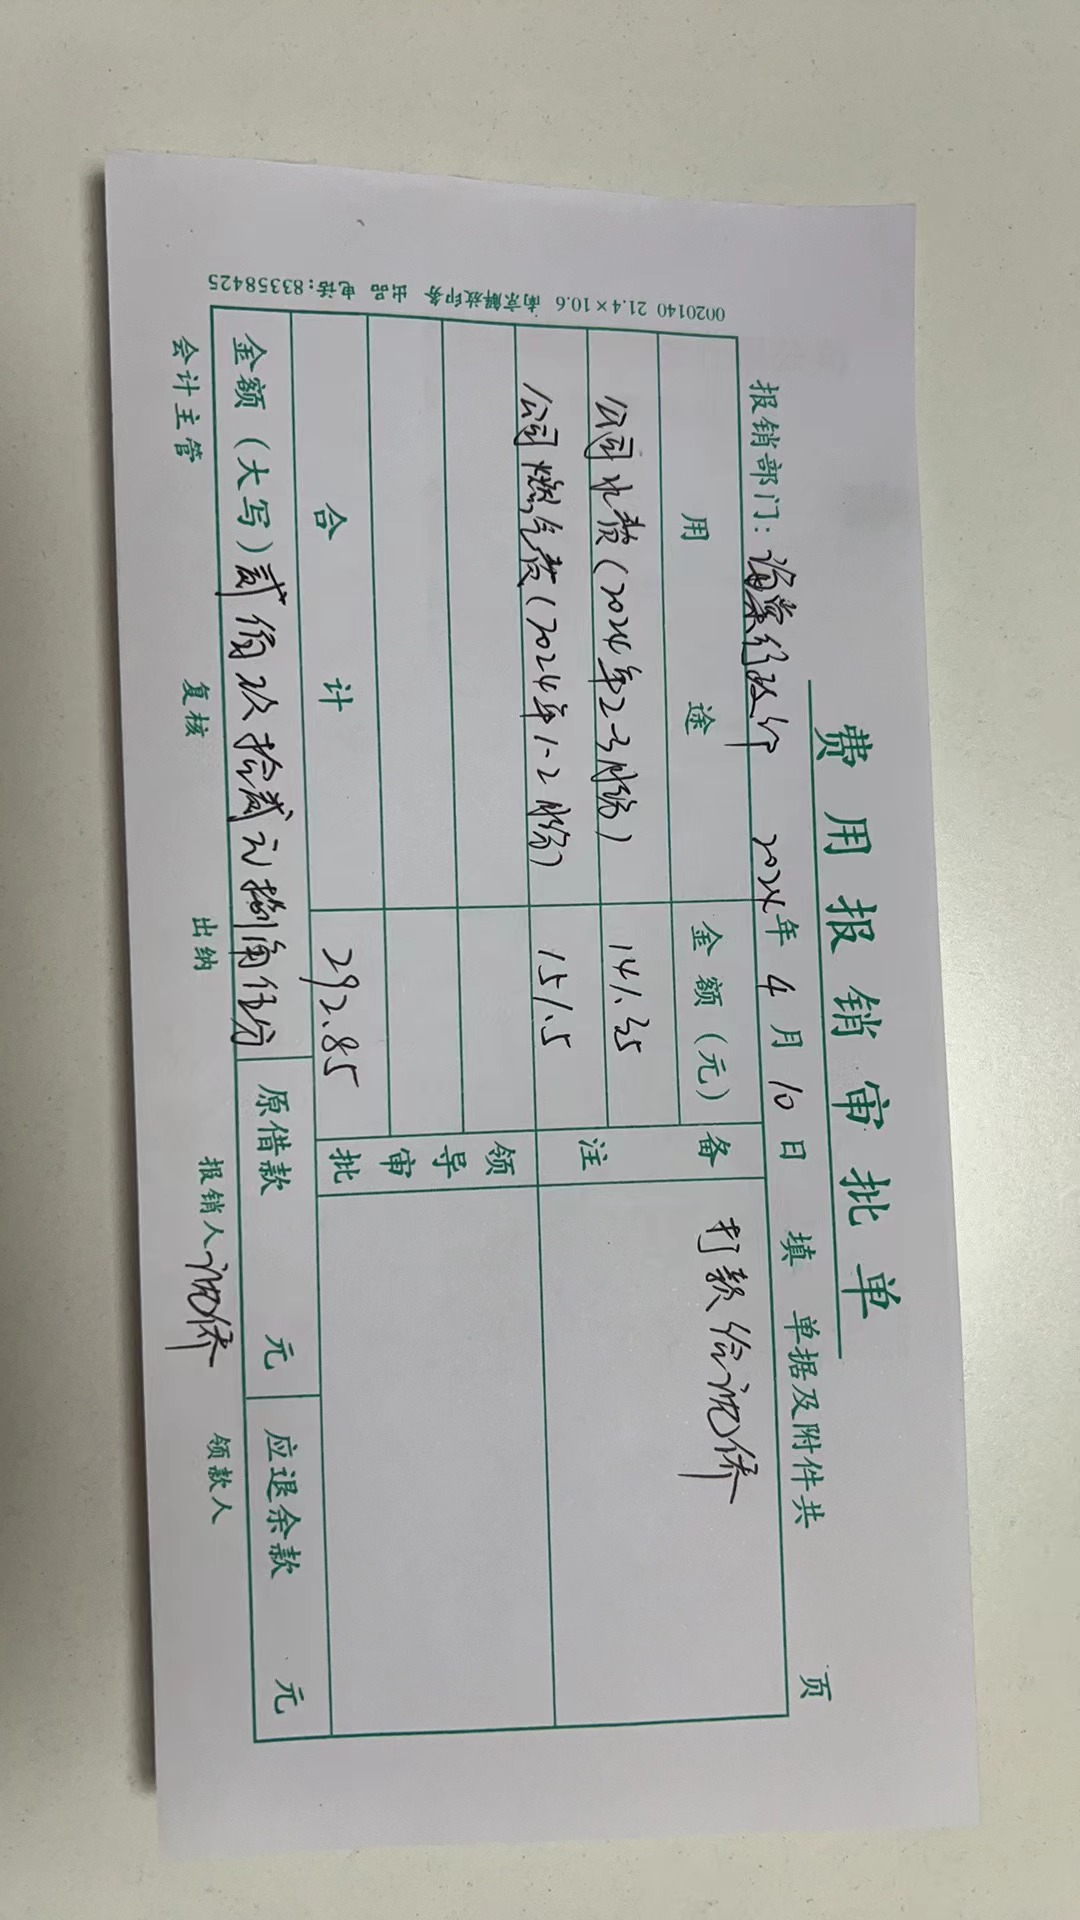 费用报销审批单
报销部门： 2024年4月10日 填 单据及附件共 页
用途 金额(元) 备注 打款给沈侨
公司水费(2024年2-3月份) 141.35
公司燃气费(2024年1-2月份) 151.5
领导审批
合计 292.85
金额(大写)贰佰玖拾贰元捌角伍分 原借款 元 应退余款 元
会计主管 复核 出纳 报销人 沈侨 领款人
0020140 21.4×10.6 南京解放印务 出品 电话:83358425